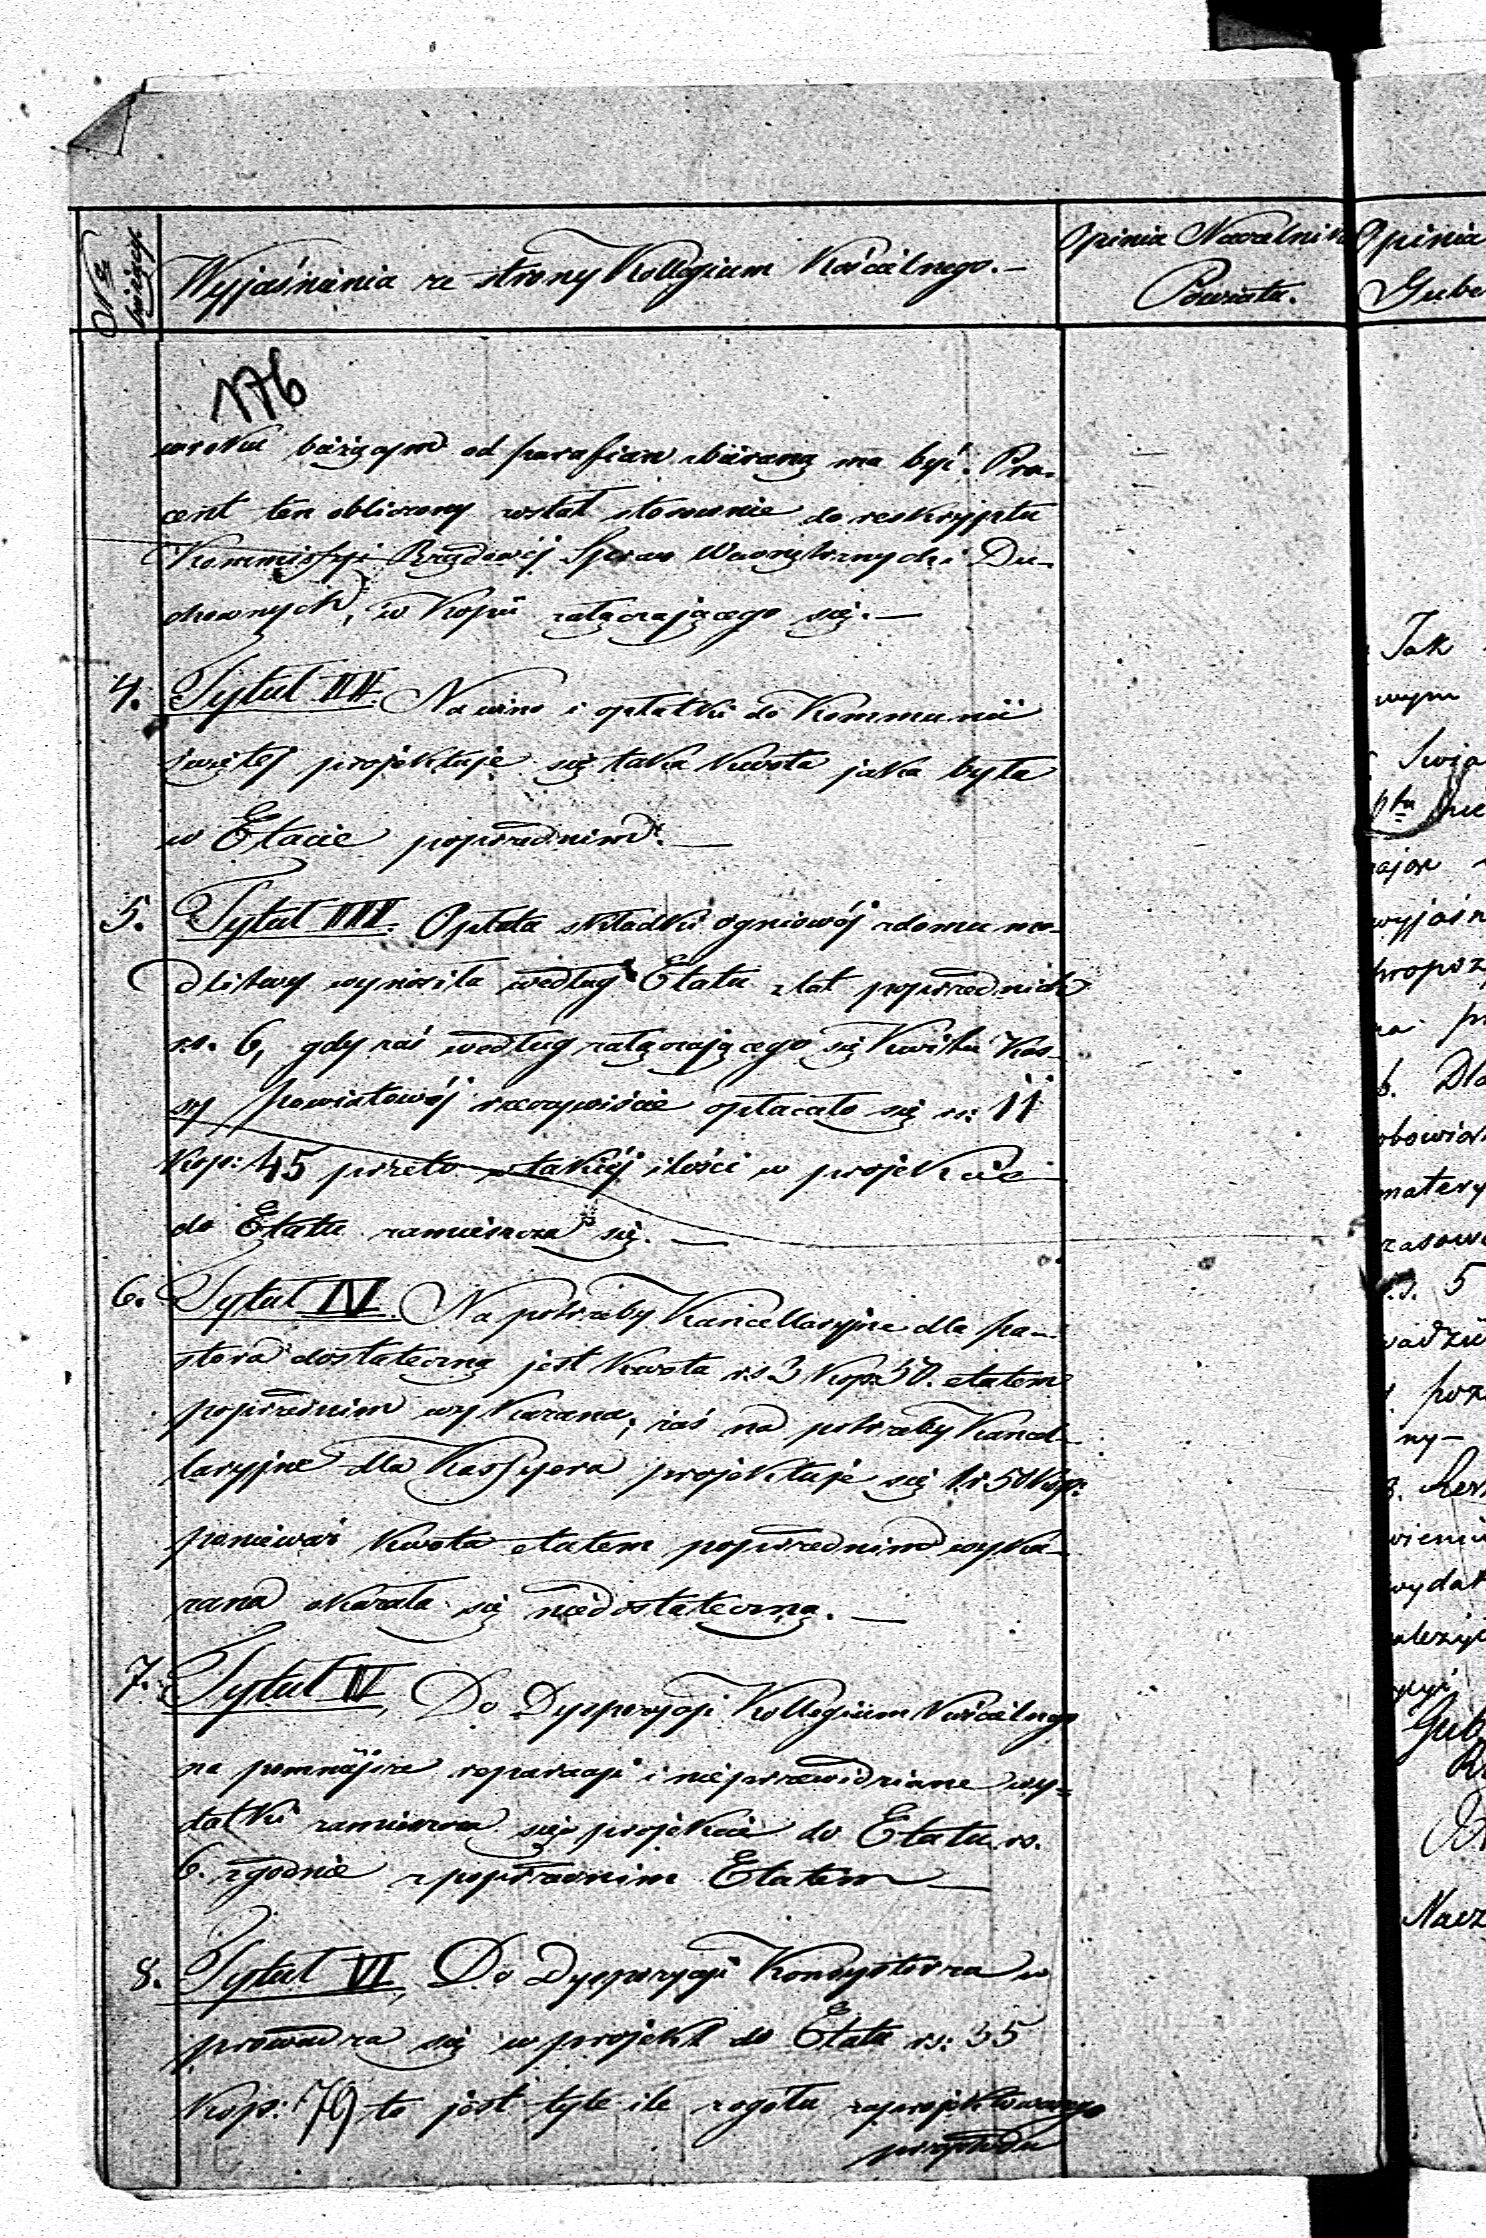 Nr bieżący.
Wyjaśnienia ze strony Kollegium Kościelnego.—
Opinia Naczelnika
Powiatu.
Opinia
Gube
176
w roku bieżącym od parafian zbieraną ma być. Pro-
cent ten obliczony został stosownie do reskryptu
Kommissyi Rządowéj Spraw Wewnętrznych i Du-
chownych, w kopii załączającego się.—
4. Tytuł III. Na wino i opłatki do Kommunii
świętej projektuje się taka kwota jaka była
w Etacie poprzednim.—
5. Tytuł IIII. Opłata składki ogniowéj z domu mo-
dlitwy wynosiła według Etatu z lat poprzednich
rs. 6, gdy zaś według załączającego się kwitu Kas-
sy Powiatowéj rzeczywiście opłacało się rs: 11
kop: 45 przeto w takiéj ilości w projekcie
do Etatu zamieszcza się.—
6. Tytuł IV. Na potrzeby Kancellaryjne dla pa-
stora dostateczną jest kwota rs 3 kop: 30. etatem
poprzednim wykazana, zaś na potrzeby Kancel-
laryjne dla Kassyera projektuje się 1 r 50 kop:
ponieważ kwota etatem poprzednim wyka-
zana okazała się niedostateczną.—
7. Tytuł IV, Do Dyspozycyi Kollegium Kościelnego
na pomniejsze reparacye i nieprzewidziane wy-
datki zamieszcza się w projekcie do Etatu rs.
6. zgodnie z poprzednim Etatem—
8. Tytuł VI, Do Dyspozycyi Konsystorza w
prowadza się w projekt do Etatu rs: 35
kop: 79 to jest tyle ile z ogółu zaprojektowanego
przychodu
Tak
wym
Swia
ptu nie
wyjaśn
propoz
na
6. Dla
obowiąz
matery
rs. 5
ny-
wydat
należyt
Gub
Nacz